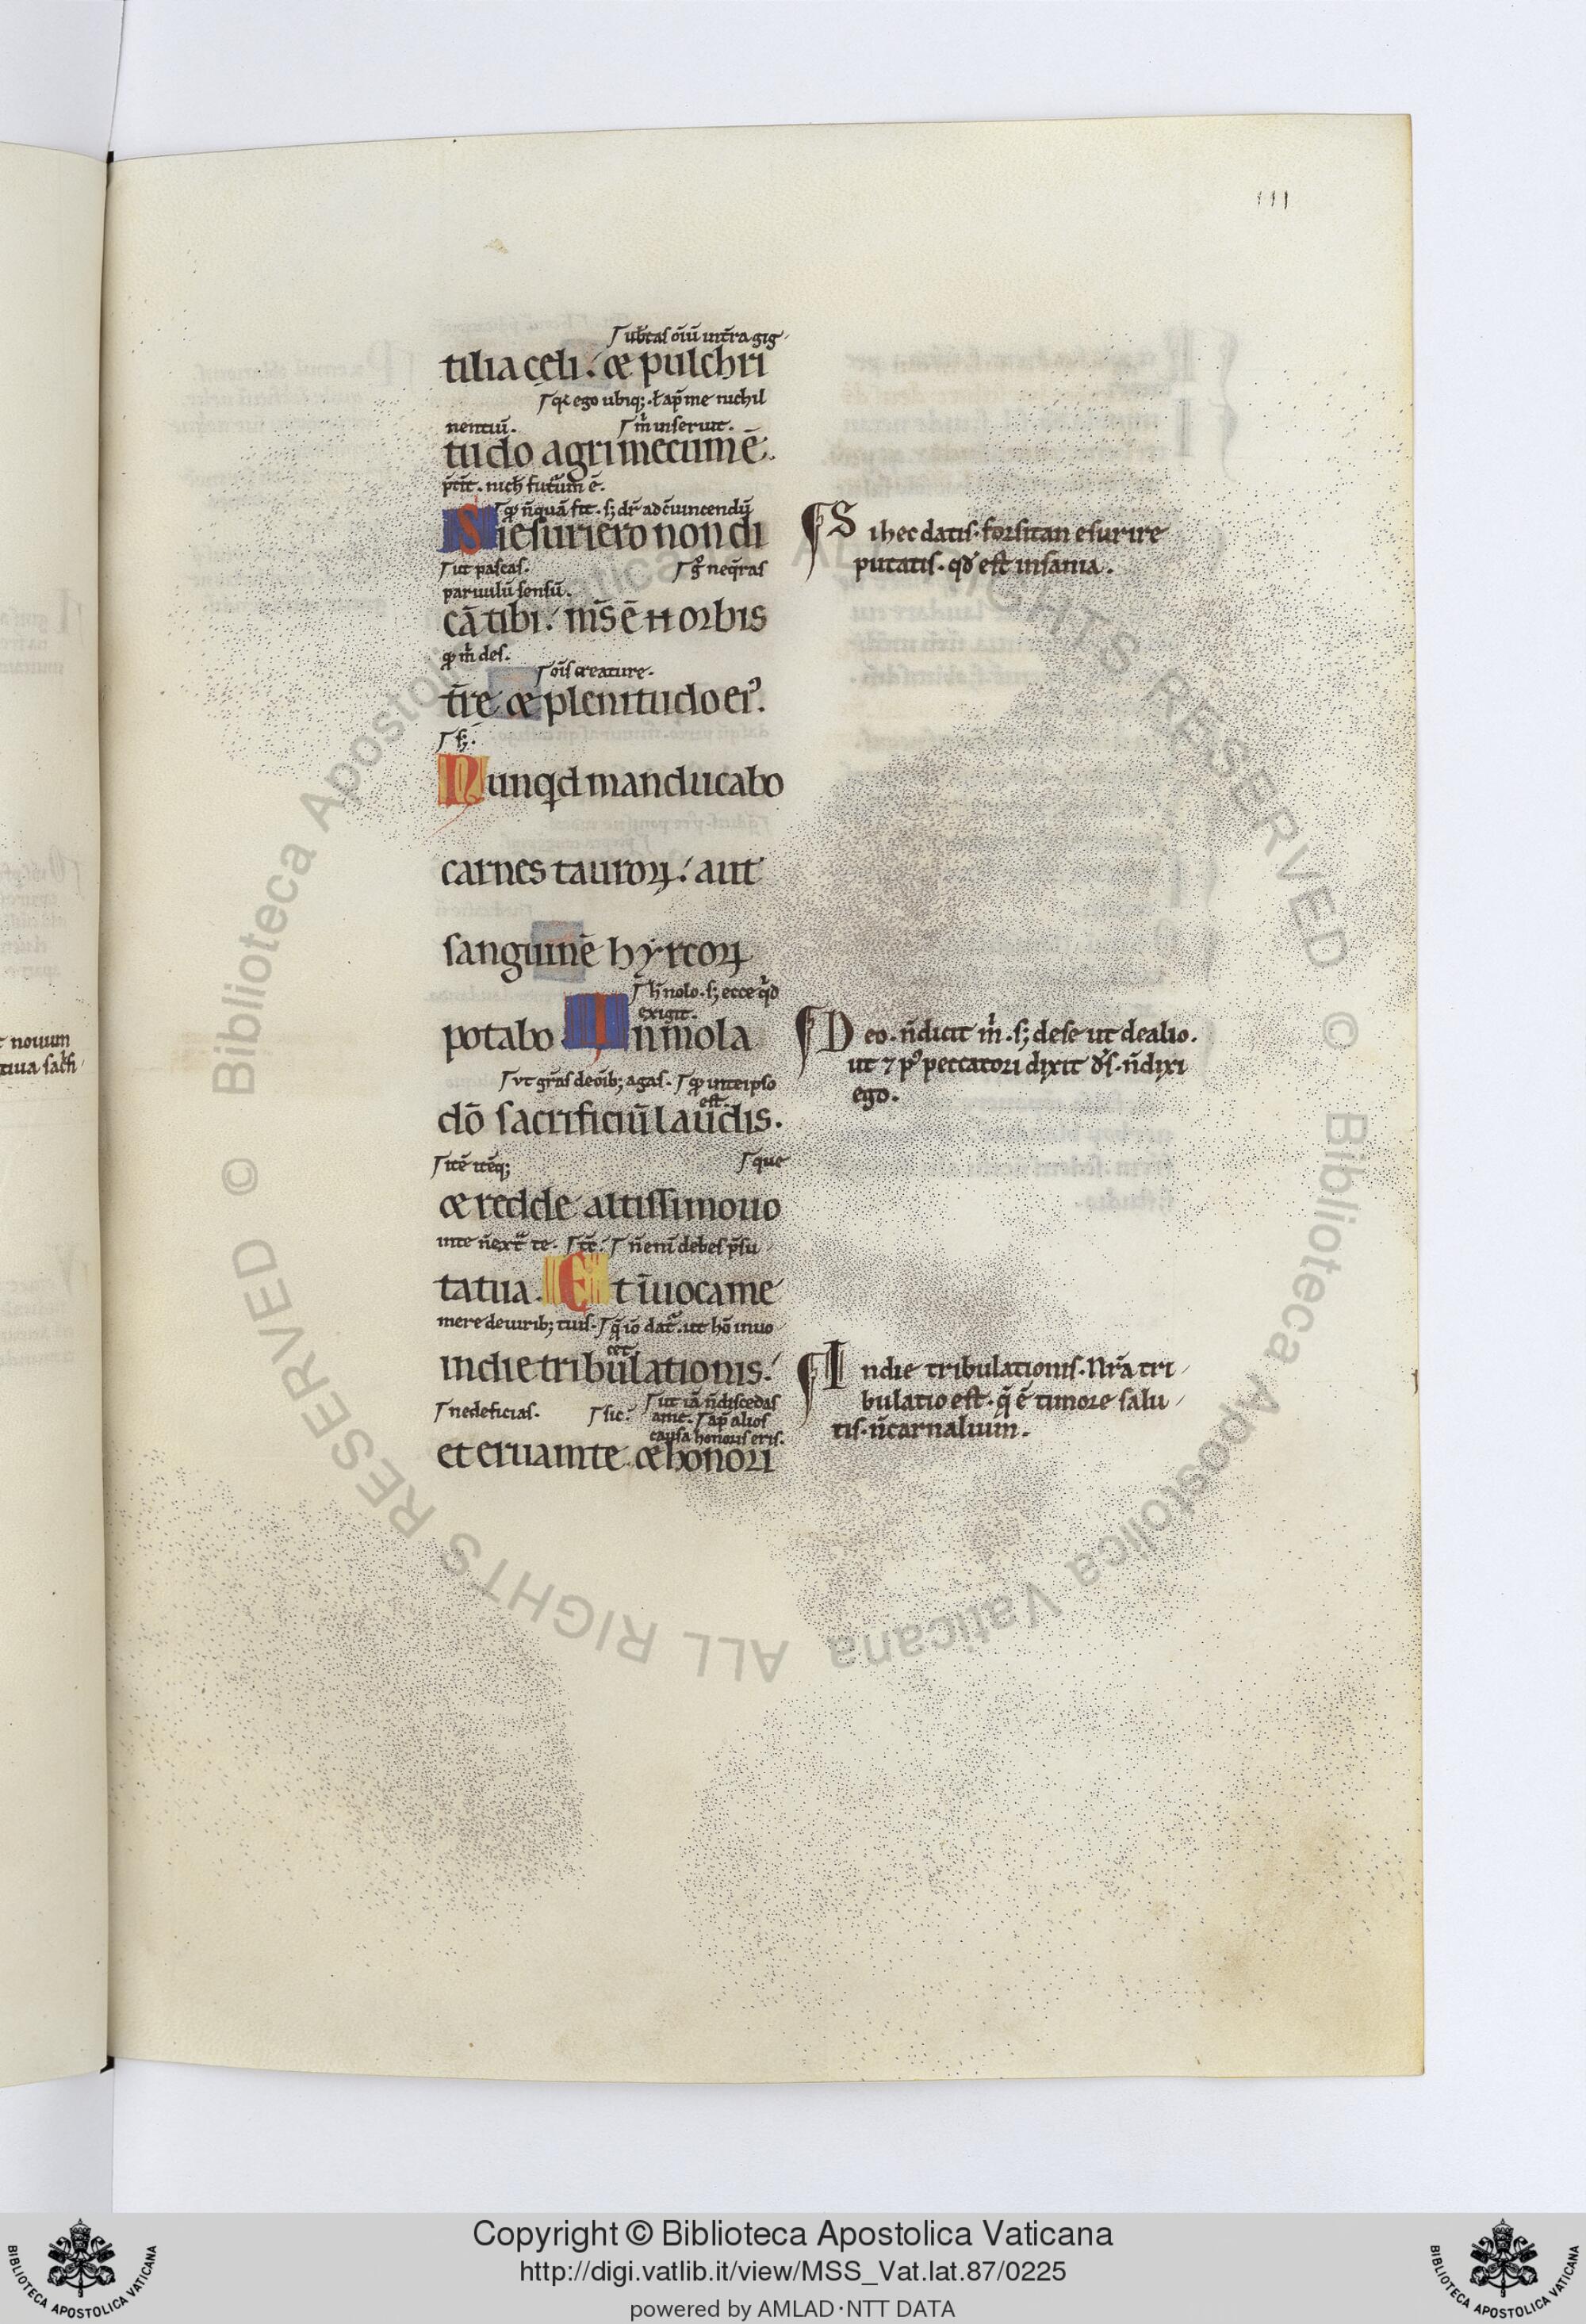 111
ub̄tas oīū int̄ra gig
tilia cęli. & pulchri
q̄ ego ubiq;. ł ap̄ me nichil
nentiū. m̄ inseruit.
tudo agri mecum ē.
p̄tīt. nich̄ futūm ē.
n̄quā fit. s; dr̄ ad c̄uincendū
Si esuriero non di
ut pascas. g° neq̄ras
paruulū sensū.
cā tibi. m̄s ē n̄ orbis
m̄ des.
oīs creature.
t̄re & plenitudo ei⁹.
s;.
Nunqd manducabo
carnes tauroꝝ. aut
sanguinē hyrcoꝝ
h̄ nolo. s; ecce qd
exigit.
potabo Inmola
ut gr̄as de oīb; agas. in te ipso
est.
dō sacrificiū laudis.
itē itēq; que
& redde altissimo uo
in te n̄ ext̄ te. n̄ enī debes p̄su
tata tua. Et īuoca me
mere de uirib; tuis. q̄ iō dat̄. ut hō inuo
cet
in die tribulationis.
ut iā n̄ discedas
ne deficias. sic. ame. ap̄ alios
causa honoris eris.
et eruam te & honori
Si hec datis. forsitan esurire
putatis. qd̄ est insania.
Deo. n̄ dicit m̄. s; de se ut de alio.
ut ⁊ p⁹ peccatori dixit d̄s. n̄ dixi
ego.
In die tribulationis. Nr̄a tri
bulatio est. q̄ ē timore salu
tis. n̄ carnalium.
t nouum
tiua sac̄fi
© Biblioteca Apostolica Vaticana ALL RIGHTS RESERVED © Biblioteca Apostolica Vaticana ALL RIGHTS RESERVED
Copyright © Biblioteca Apostolica Vaticana
http://digi.vatlib.it/view/MSS_Vat.lat.87/0225
powered by AMLAD・NTT DATA
BIBLIOTECA APOSTOLICA VATICANA
BIBLIOTECA APOSTOLICA VATICANA